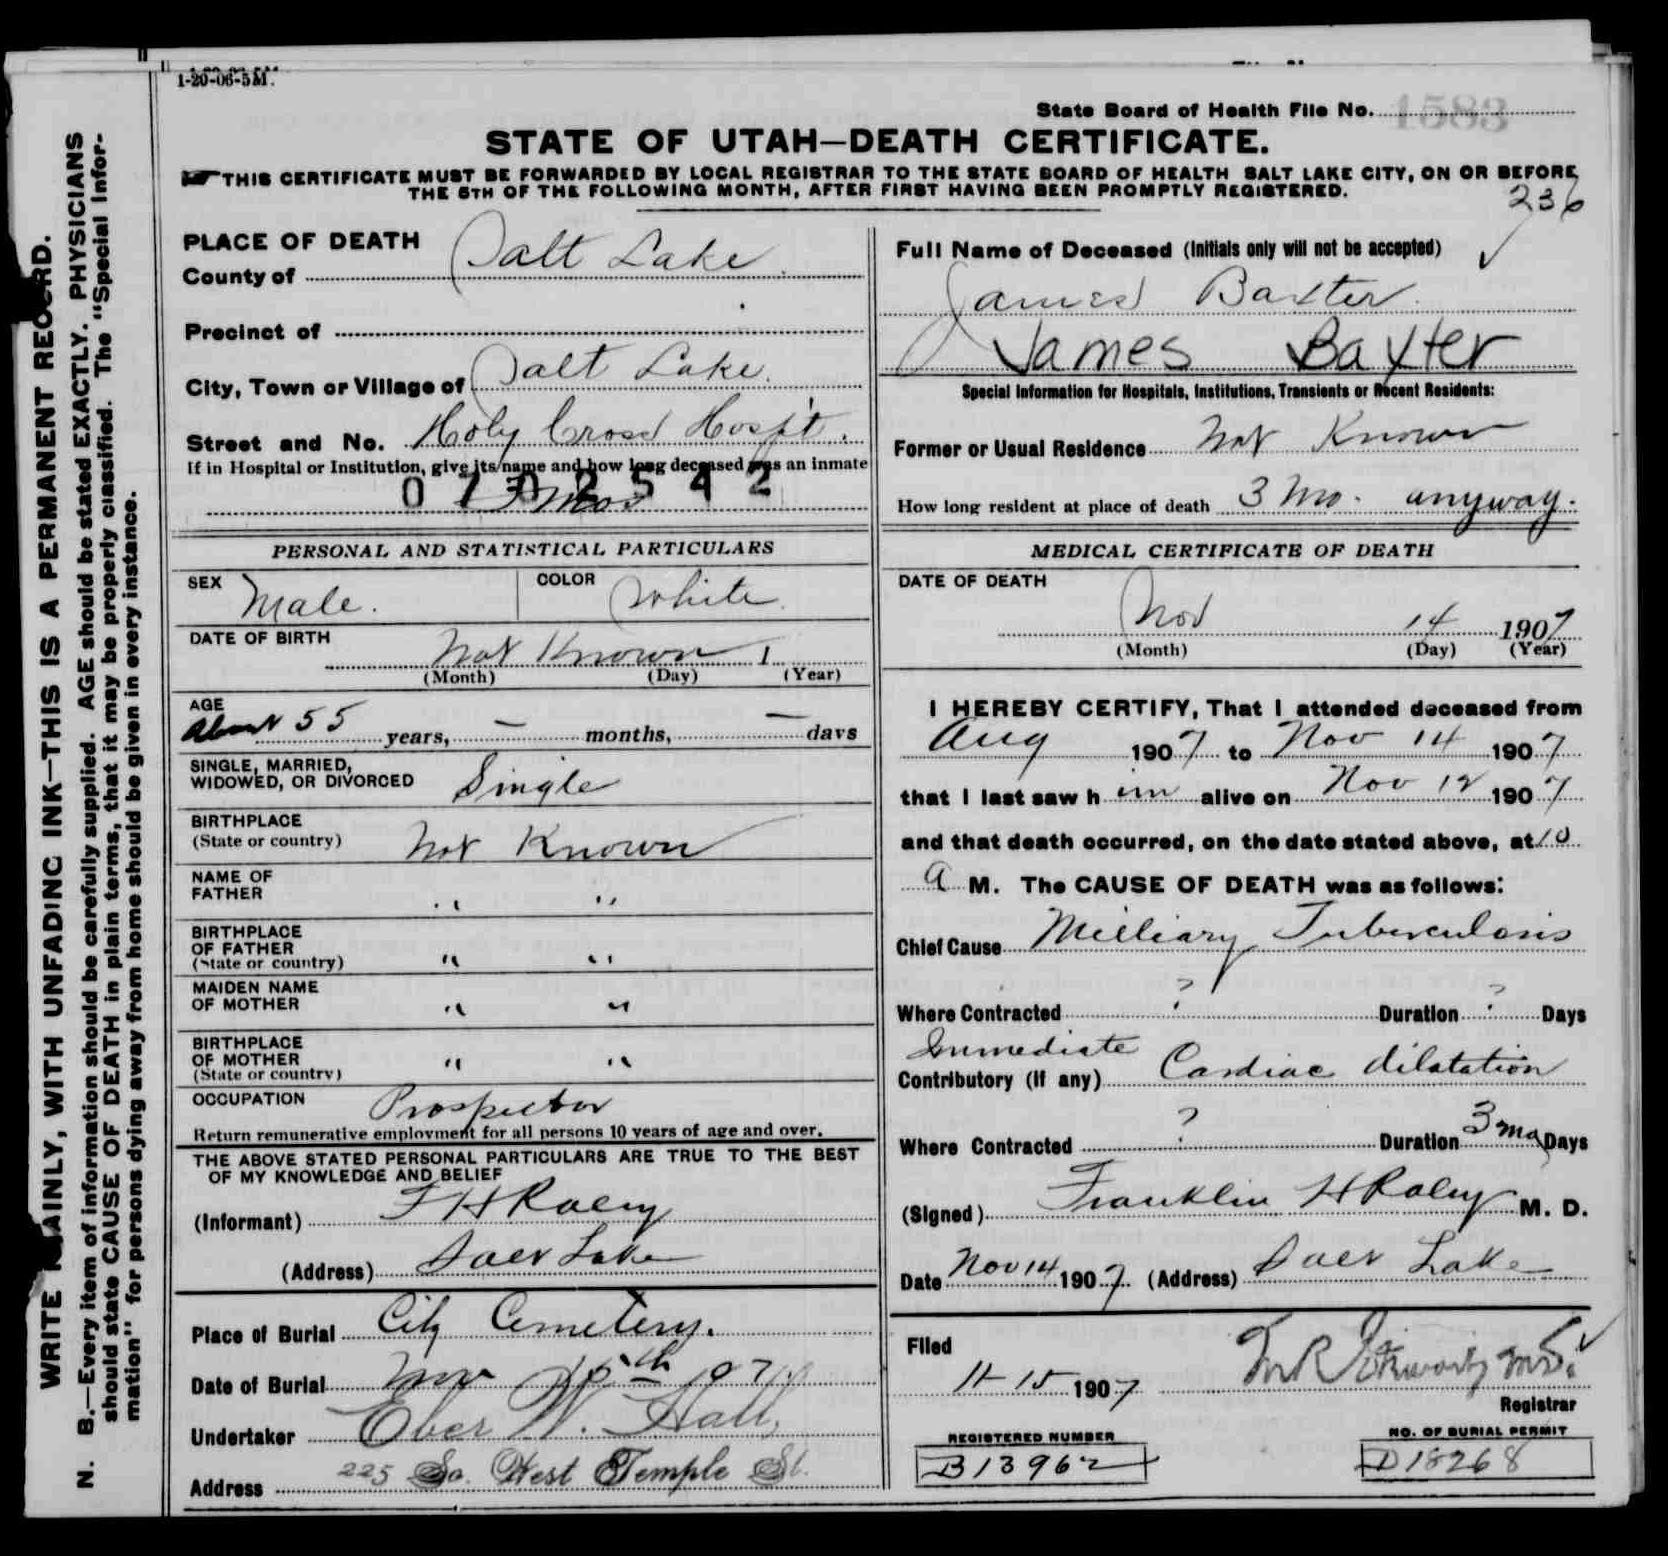 1-20-06-5M.
State Board of Health File No. 1583
STATE OF UTAH—DEATH CERTIFICATE.
THIS CERTIFICATE MUST BE FORWARDED BY LOCAL REGISTRAR TO THE STATE BOARD OF HEALTH SALT LAKE CITY, ON OR BEFORE
THE 5TH OF THE FOLLOWING MONTH, AFTER FIRST HAVING BEEN PROMPTLY REGISTERED.
236
WRITE PLAINLY, WITH UNFADING INK—THIS IS A PERMANENT RECORD.
N. B.—Every item of information should be carefully supplied. AGE should be stated EXACTLY. PHYSICIANS
should state CAUSE OF DEATH in plain terms, that it may be properly classified. The "Special Infor-
mation" for persons dying away from home should be given in every instance.
PLACE OF DEATH
County of Salt Lake
Precinct of
City, Town or Village of Salt Lake.
Street and No. Holy Cross Hospt.
If in Hospital or Institution, give its name and how long deceased was an inmate
0702542
3 Mos
PERSONAL AND STATISTICAL PARTICULARS
SEX Male. COLOR White
DATE OF BIRTH
Not Known 1
(Month) (Day) (Year)
AGE
About 55 years, — months, — days
SINGLE, MARRIED,
WIDOWED, OR DIVORCED Single
BIRTHPLACE
(State or country) Not Known
NAME OF
FATHER " "
BIRTHPLACE
OF FATHER
(State or country) " "
MAIDEN NAME
OF MOTHER " "
BIRTHPLACE
OF MOTHER
(State or country) " "
OCCUPATION Prospector
Return remunerative employment for all persons 10 years of age and over.
THE ABOVE STATED PERSONAL PARTICULARS ARE TRUE TO THE BEST
OF MY KNOWLEDGE AND BELIEF
(Informant) F H Raley
(Address) Salt Lake
Place of Burial City Cemetery.
Date of Burial Nov 15th 07
Undertaker Eber W. Hall
Address 225 So. West Temple St.
Full Name of Deceased (Initials only will not be accepted)
James Baxter
James Baxter
Special Information for Hospitals, Institutions, Transients or Recent Residents:
Former or Usual Residence Not Known
How long resident at place of death 3 Mo. anyway.
MEDICAL CERTIFICATE OF DEATH
DATE OF DEATH
Nov 14 1907
(Month) (Day) (Year)
I HEREBY CERTIFY, That I attended deceased from
Aug 1907 to Nov 14 1907
that I last saw him alive on Nov 12 1907
and that death occurred, on the date stated above, at 10
A M. The CAUSE OF DEATH was as follows:
Chief Cause Milliary Tuberculosis
Where Contracted ? Duration ? Days
Immediate
Contributory (If any) Cardiac dilatation
Where Contracted ? Duration 3 mo Days
(Signed) Franklin H Raley M. D.
Date Nov 14 1907 (Address) Salt Lake
Filed
11-15 1907
Registrar
REGISTERED NUMBER
B13962
NO. OF BURIAL PERMIT
D18268